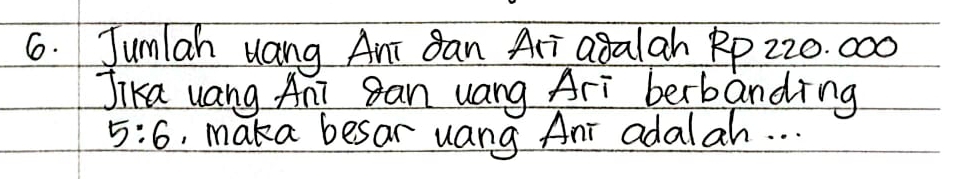 6. Jumlah uang Ani dan Ari adalah Rp 220.000
Jika uang Ani dan uang Ari berbanding
5:6, maka besar uang Ani adalah ...